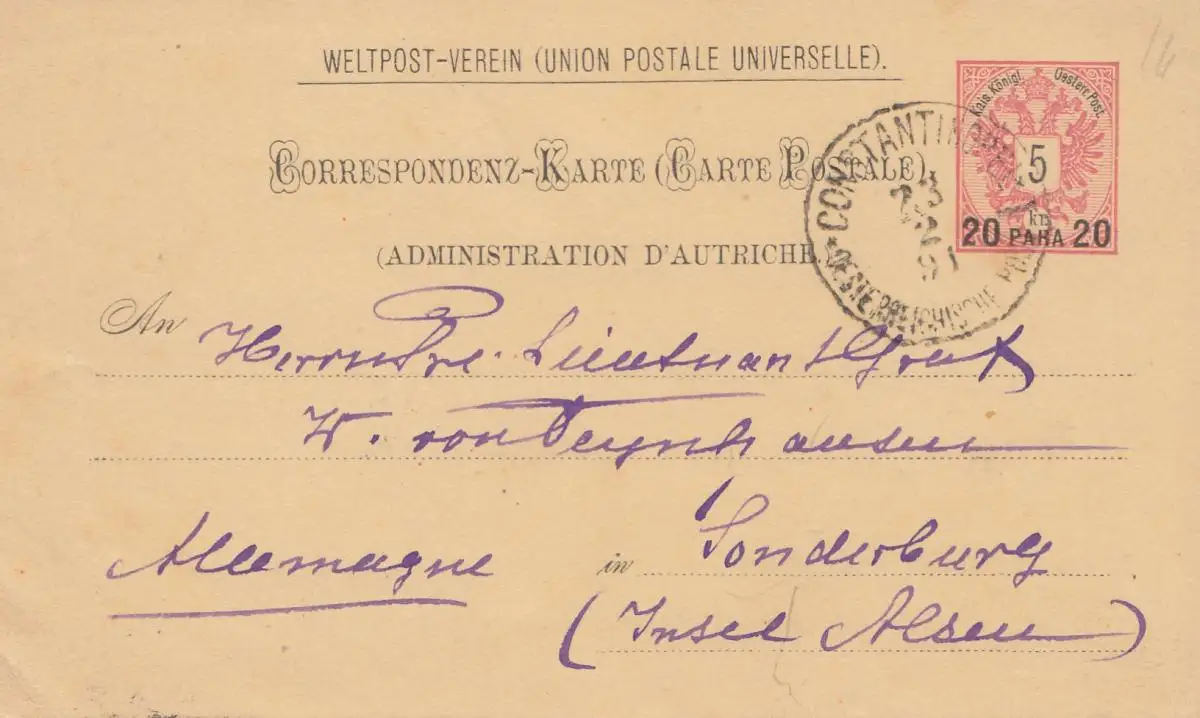 WELTPOST-VEREIN (UNION POSTALE UNIVERSELLE).
CORRESPONDENZ-KARTE (CARTE POSTALE),
(ADMINISTRATION D'AUTRICHE.)
Kais. Königl. Oesterr. Post.
5
kr.
20 PARA 20
CONSTANTINOPEL
23
91
OESTERREICHISCHE POST
16
An
Herrn Lieutnant Graf
W. von
Allemagne
in Sonderburg
(Insel Alsen)